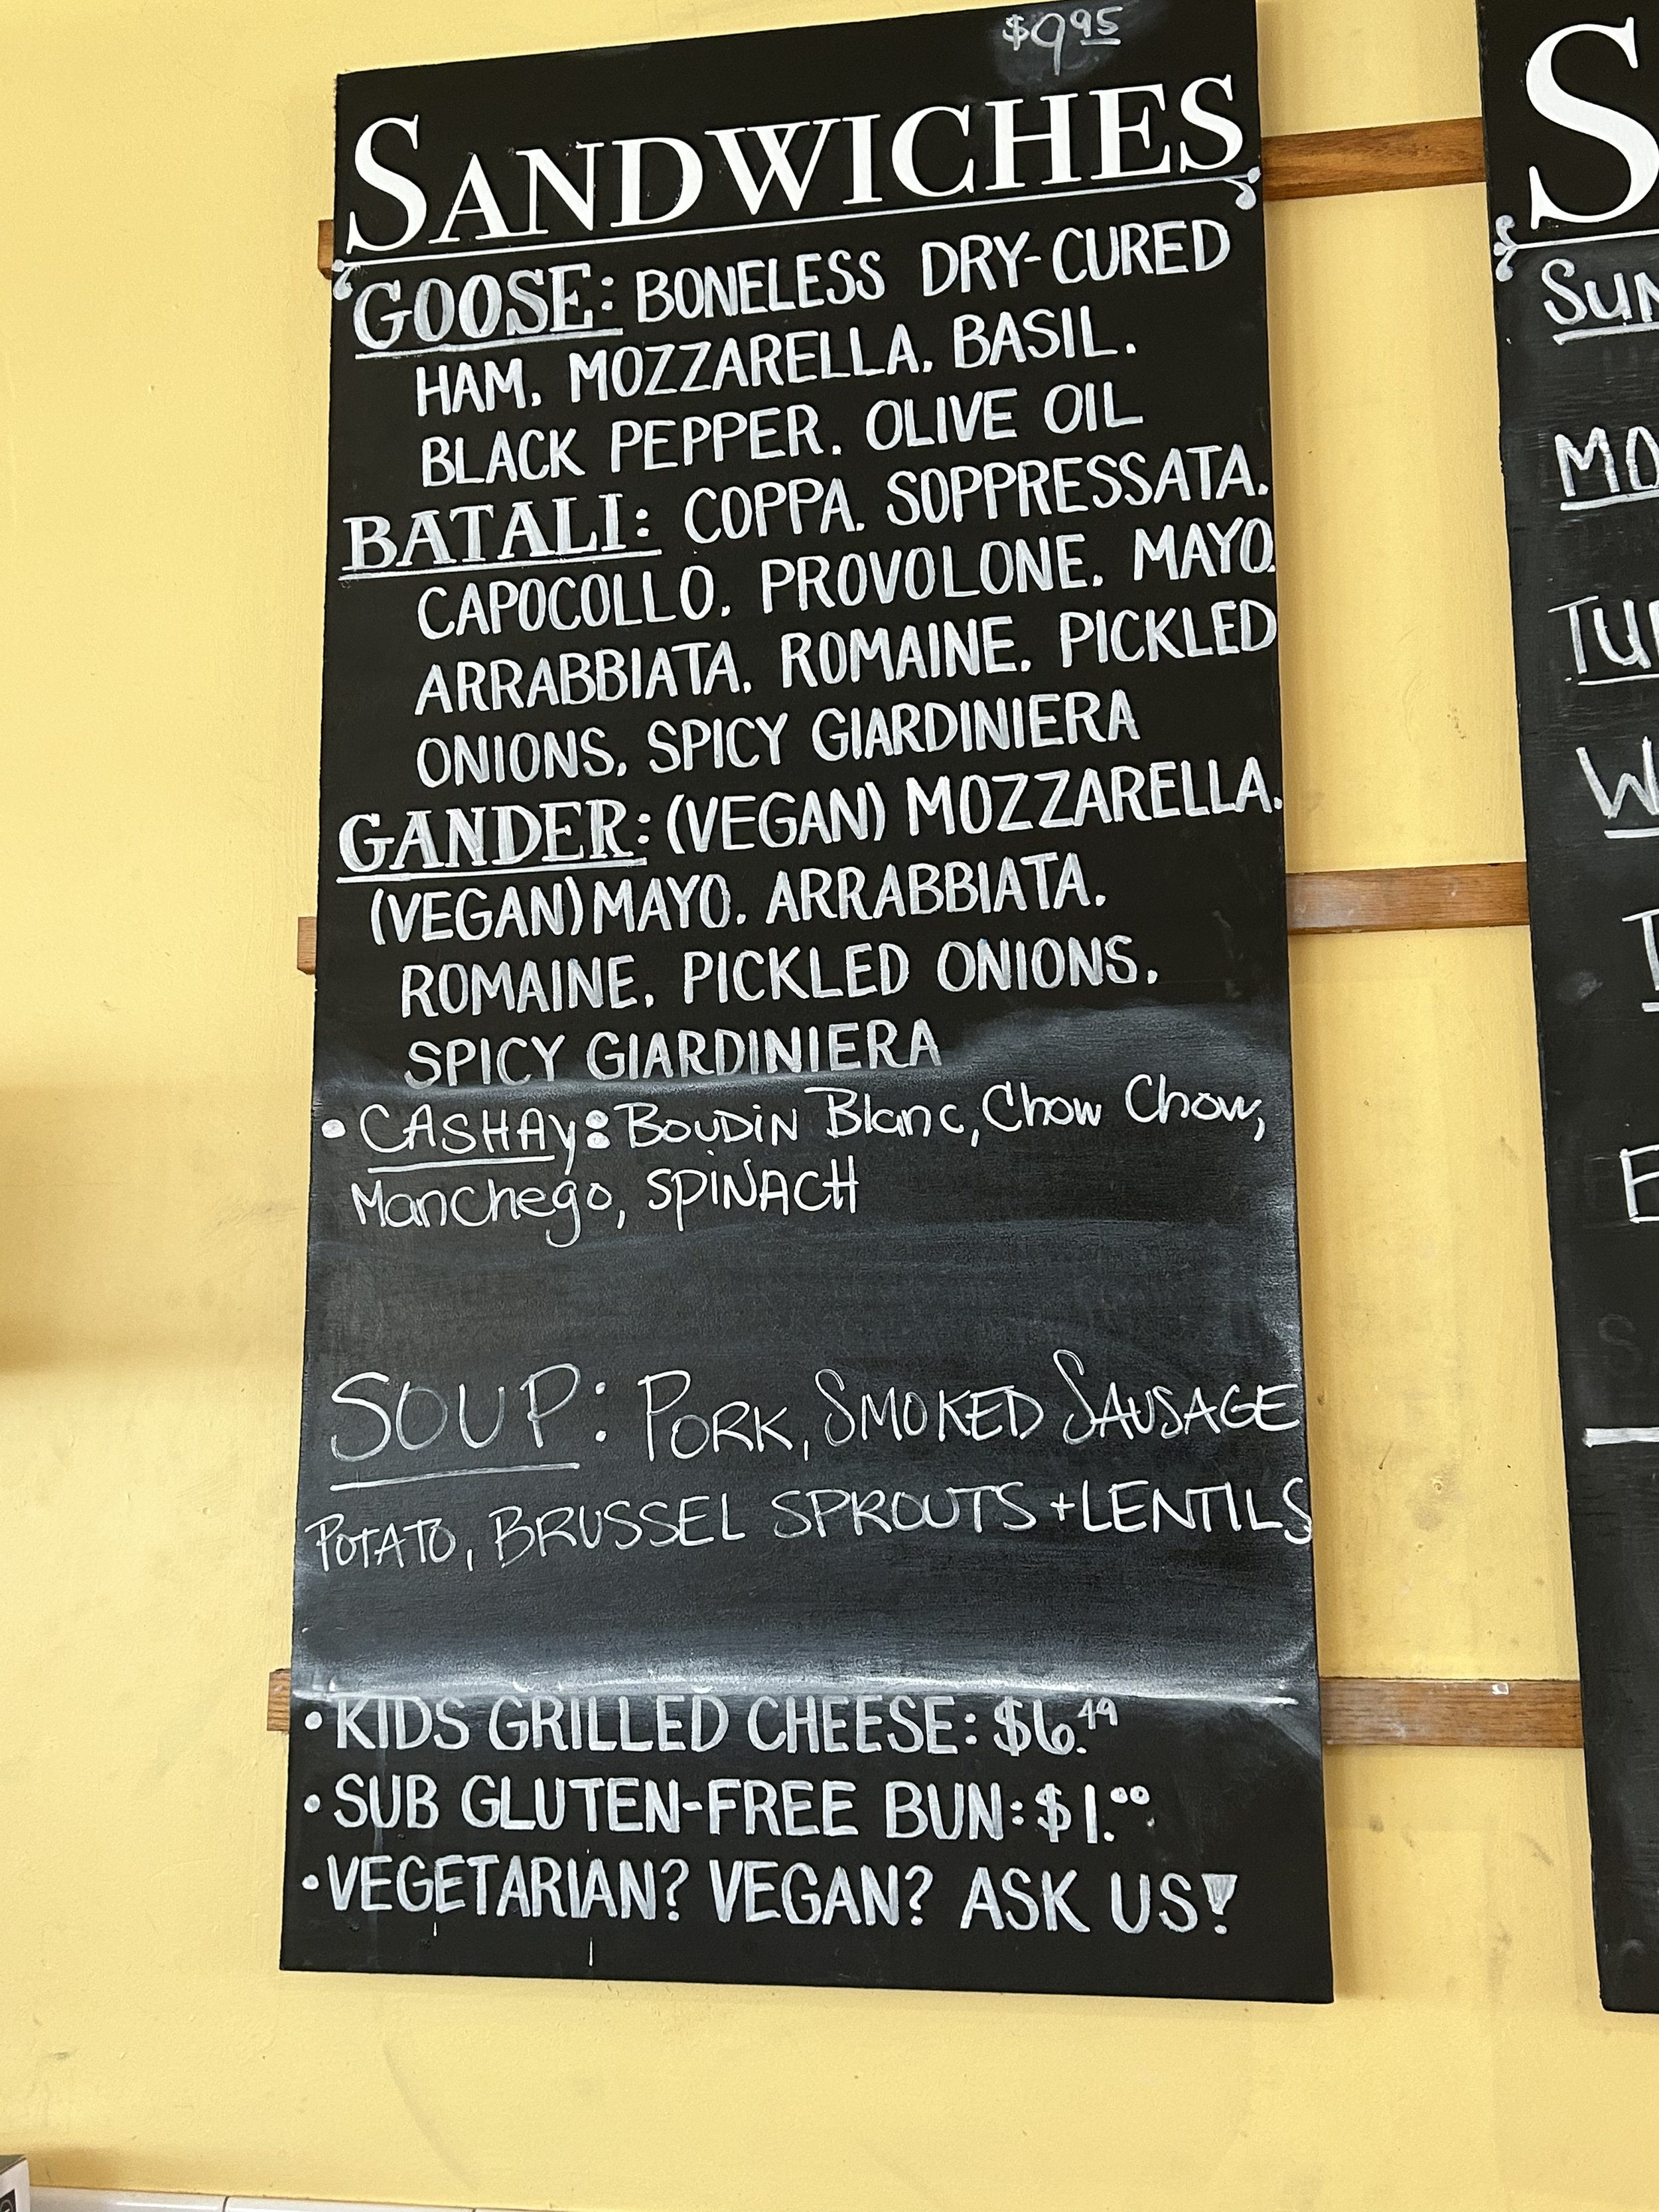 $9.95
SANDWICHES
GOOSE: BONELESS DRY-CURED
HAM. MOZZARELLA. BASIL.
BLACK PEPPER. OLIVE OIL
BATALI: COPPA. SOPPRESSATA.
CAPOCOLLO. PROVOLONE. MAYO.
ARRABBIATA. ROMAINE. PICKLED
ONIONS. SPICY GIARDINIERA
GANDER: (VEGAN) MOZZARELLA.
(VEGAN) MAYO. ARRABBIATA.
ROMAINE. PICKLED ONIONS.
SPICY GIARDINIERA
• CASHAy: BOUDiN Blanc, Chow Chow,
Manchego, SPiNACH
SOUP: PORK, SMOKED SAUSAGE
POTATO, BRUSSEL SPROUTS + LENTILS
• KIDS GRILLED CHEESE: $6.49
• SUB GLUTEN-FREE BUN: $1.00
• VEGETARIAN? VEGAN? ASK US!